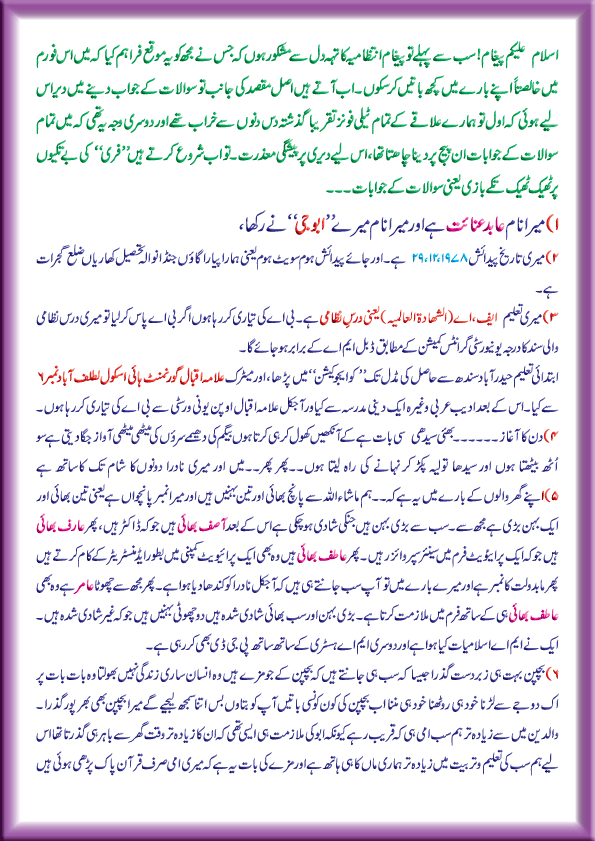 اسلام علیکم پیغام! سب سے پہلے تو پیغام انتظامیہ کا تہہ دل سے مشکور ہوں کہ جس نے مجھ کو یہ موقع فراہم کیا کہ میں اس فورم
میں خالصتاً اپنے بارے میں کچھ باتیں کر سکوں۔ اب آتے ہیں اصل مقصد کی جانب تو سوالات کے جواب دینے میں دیر اس
لیے ہوئی کہ اول تو ہمارے علاقے کے تمام ٹیلی فونز تقریباً گذشتہ دس دنوں سے خراب تھے اور دوسری وجہ یہ تھی کہ میں تمام
سوالات کے جوابات ان پیج پر دینا چاھتا تھا، اس لیے دیری پر پیشگی معذرت۔ تو اب شروع کرتے ہیں ”فری“ کی بے تکیوں
پر ٹھیک ٹھیک تکے بازی یعنی سوالات کے جوابات۔۔۔
۱) میرا نام عابد عنائت ہے اور میرا نام میرے ”ابو جی“ نے رکھا،
۲) میری تاریخ پیدائش ۲۹،۱۲،۱۹۷۸ ہے۔ اور جائے پیدائش ہوم سویٹ ہوم یعنی ہمارا پیارا گاؤں جنڈانوالہ تحصیل کھاریاں ضلع گجرات
ہے۔
۳) میری تعلیم ایف، اے (الشھادۃ العالمیہ) یعنی درسِ نظامی ہے۔ بی اے کی تیاری کر رہا ہوں اگر بی اے پاس کر لیا تو میری درس نظامی
والی سند کا درجہ یونیورسٹی گرانٹس کمیشن کے مطابق ڈبل ایم اے کے برابر ہو جائے گا۔
ابتدائی تعلیم حیدرآباد سندھ سے حاصل کی مڈل تک ”کو ایجوکیشن“ میں پڑھا، اور میٹرک علامہ اقبال گورنمنٹ ہائی اسکول لطف آباد نمبر ۶
سے کیا۔ اس کے بعد ادیب عربی وغیرہ ایک دینی مدرسہ سے کیا ور آجکل علامہ اقبال اوپن یونی ورسٹی سے بی اے کی تیاری کر رہا ہوں۔
۴) دن کا آغاز ۔۔۔۔۔۔ بھئی سیدھی سی بات ہے کے آنکھیں کھول کر ہی کرتا ہوں بیگم کی دھیمے سرؤں کی میٹھی میٹھی آواز جگا دیتی ہے سو
اُٹھ بیٹھتا ہوں اور سیدھا تولیہ پکڑ کر نہانے کی راہ لیتا ہوں۔۔ پھر پھر۔۔ میں اور میری نادرا دونوں کا شام تک کا ساتھ ہے
۵) اپنے گھر والوں کے بارے میں یہ ہے کہ۔۔ ہم ماشاءاللہ سے پانچ بھائی اور تین بہنیں ہیں اور میرا نمبر پانچواں ہے یعنی تین بھائی اور
ایک بہن بڑی ہے مجھ سے۔ سب سے بڑی بہن ہیں جنکی شادی ہو چکی ہے اس کے بعد آصف بھائی ہیں جو کہ ڈاکٹر ہیں، پھر عارف بھائی
ہیں جو کہ ایک پرائیوٹ فرم میں سینئر سپروائزر ہیں۔ پھر عاطف بھائی ہیں وہ بھی ایک پرائیویٹ کمپنی میں بطور ایڈمنسٹریٹر کے کام کرتے ہیں
پھر مابدولت کا نمبر ہے اور میرے بارے میں تو آپ سب جانتے ہی ہیں کہ آجکل نادرا کو کندھا دیا ہوا ہے۔ پھر مجھ سے چھوٹا عامر ہے وہ بھی
عاطف بھائی ہی کے ساتھ فرم میں ملازمت کرتا ہے۔ بڑی بہن اور سب بھائی شادی شدہ ہیں دو چھوٹی بہنیں ہیں جو کہ غیر شادی شدہ ہیں۔
ایک نے ایم اے اسلامیات کیا ہوا ہے اور دوسری ایم اے ہسٹری کے ساتھ ساتھ پی جی ڈی بھی کر رہی ہے۔
۶) بچپن بہت ہی زبردست گذرا جیسا کہ سب ہی جانتے ہیں کہ بچپن کے جو مزے ہیں وہ انسان ساری زندگی نہیں بھولتا وہ بات بات پر
اک دوجے سے لڑنا خود ہی روٹھنا خود ہی مننا اب بچپن کی کون کونسی باتیں آپ کو بتاوں بس اتنا سمجھ لیجیے گے میرا بچپن بھی بھر پور گذرا۔
والدین میں سے زیادہ تر ہم سب امی ہی کہ قریب رہے کیونکہ ابو کی ملازمت ہی ایسی تھی کہ ان کا زیادہ تر وقت گھر سے باہر ہی گذرتا تھا اس
لیے ہم سب کی تعلیم و تربیت میں زیادہ تر ہماری ماں کا ہی ہاتھ ہے اور مزے کی بات یہ ہے کہ میری امی صرف قرآن پاک پڑھی ہوئی ہیں